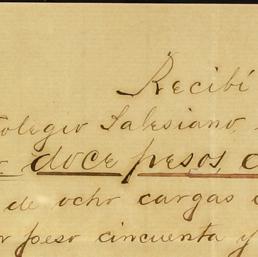 Recibí
olegio Salesiano,
doce pesos, c
de ocho cargas
r peso cincuenta y